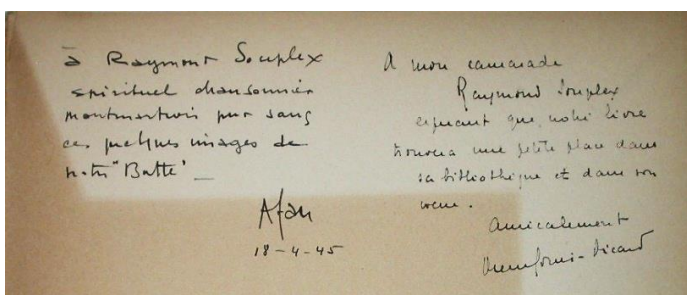 à Raymont Souplex
spirituel chansonnier
montmartrois pur sang
ces quelques images de
notre "Butte" _
Afan
18-4-45
A mon camarade
Raymond Souplex
espérant que notre livre
trouvera une petite place dans
sa bibliothèque et dans son
coeur.
Amicalement